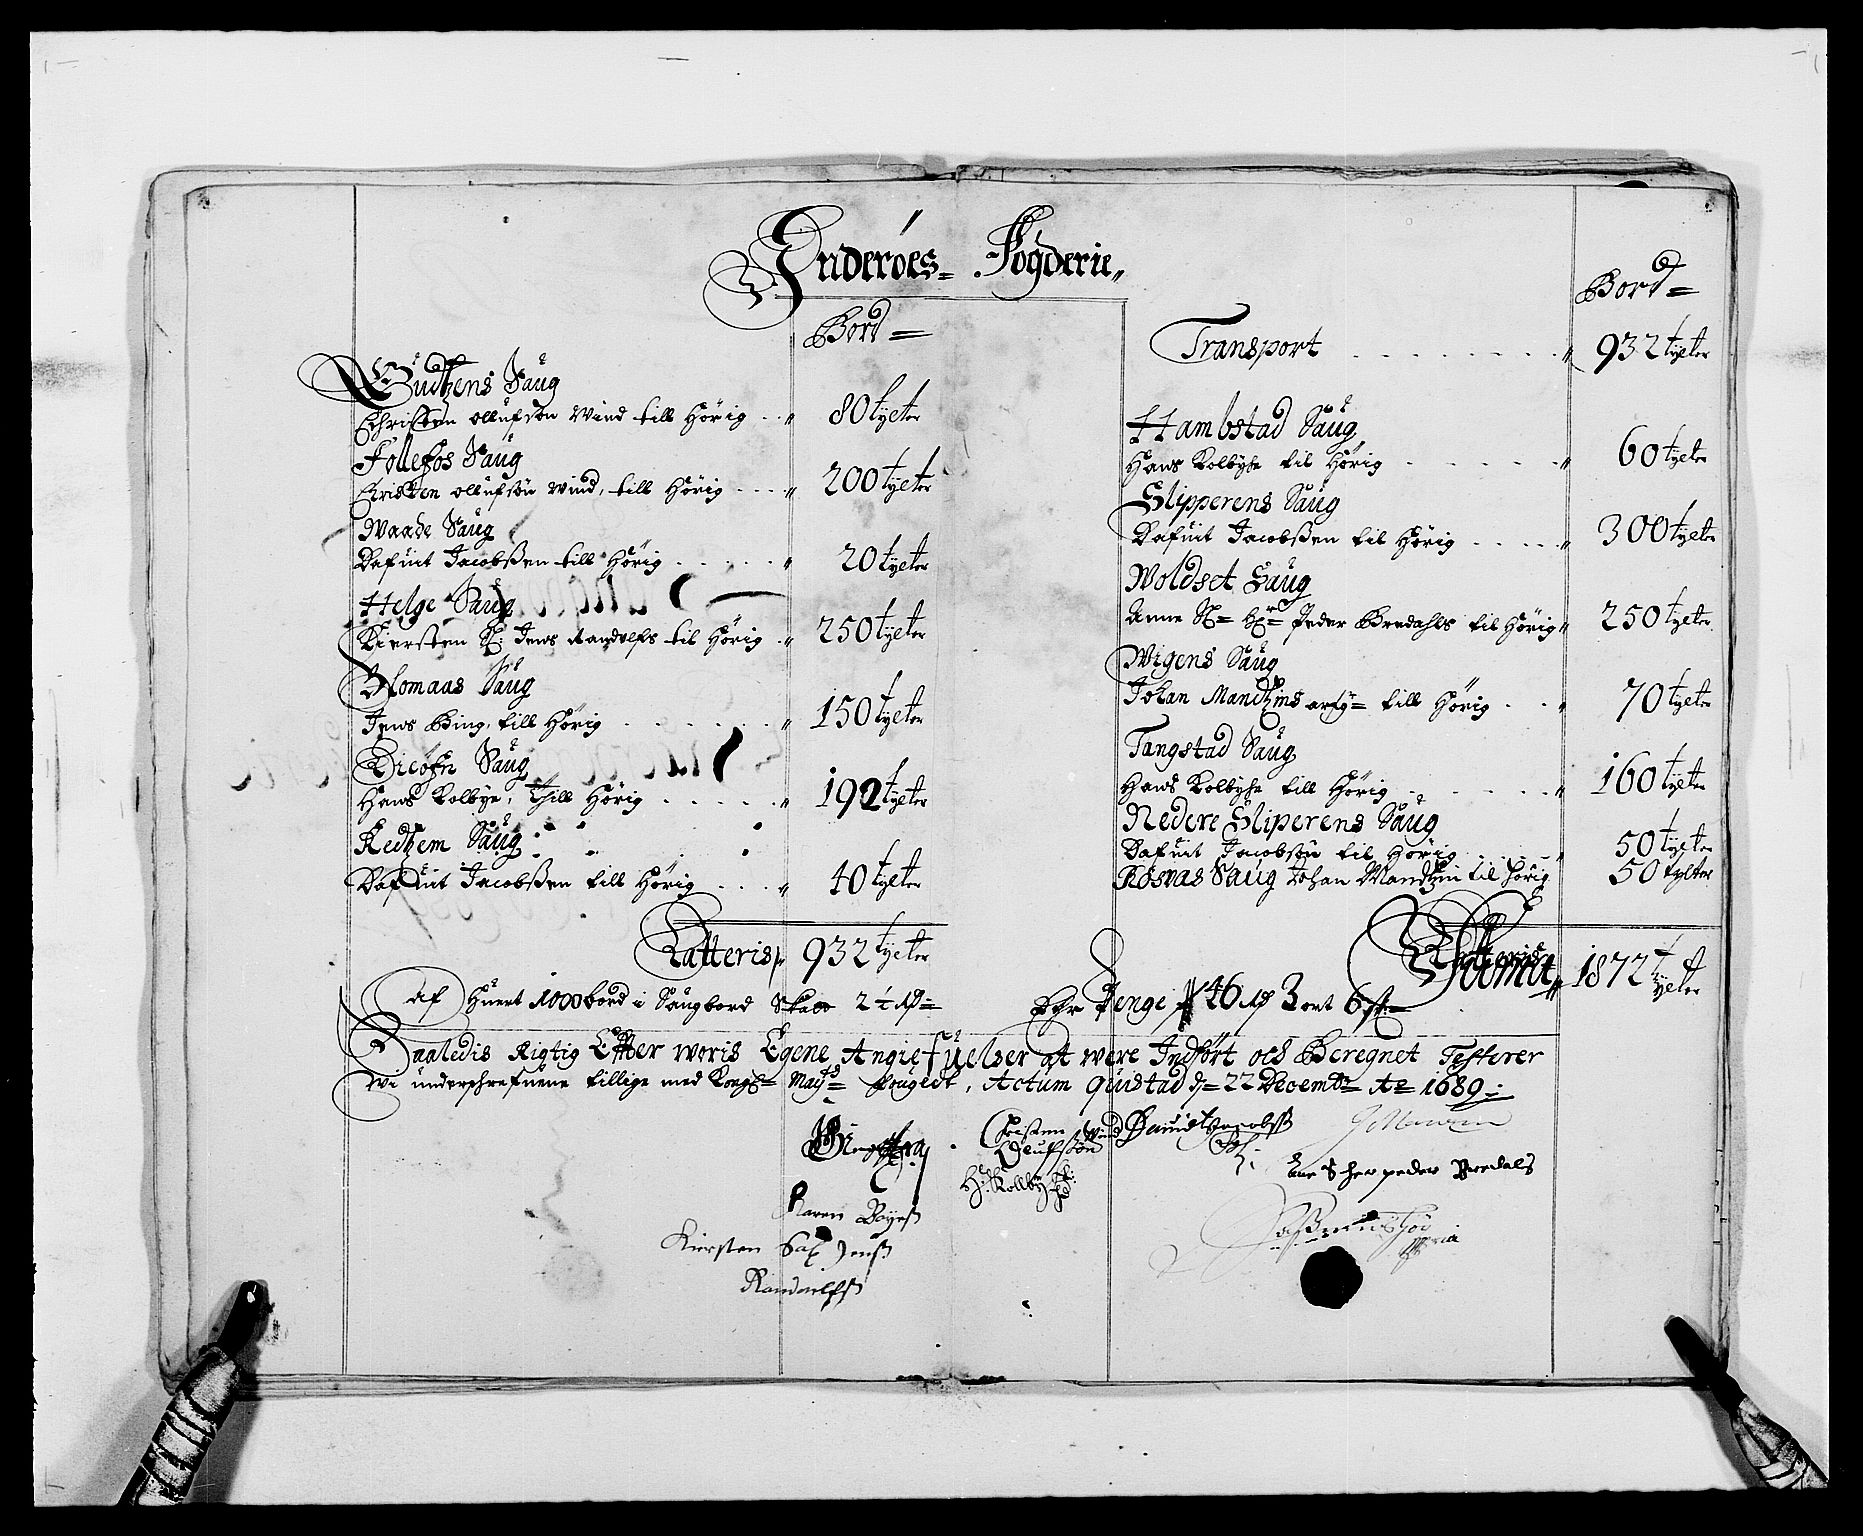 Inderöes= Fogderie„
Bord=
Gudhens Saug
Christen Ollufsøn Wind till hörig . . „ 80 tylter
Follefos Saug
Christen Ollufsøn Wind, till hörig . . . „ 200 tylter
Waade Saug
Dafuit Jacobßen till hörig . . . . . „ 20 tylter
Helge Saug
Kiersten Sl: Jens Randulfs til hörig . „ 250 tylter
Blomaas Saug
Jens Bing, till hörig . . . . . . „ 150 tylter
Hans Kolbye, thill hörig . . . . . „ 192 tylter
Redhem Saug
Dafuit Jacobßen till hörig . . . „ 40 tylter
Latteris„ 932 tylter
Bord=
Transport . . . . . . . . „ 932 tylter
Hambstad Saug
Hans Kolbyhe til hörig . . . . . . „ 60 tylter
Slipperens Saug
Dafuit Jacobßen til hörig . . . . „ 300 tylter
Woldset Saug
Anne Sl= Hr= Peder Bredahls til hörig„ 250 tylter
Wigens Saug
Johan Mandhins arfg= till hörig . . „ 70 tylter
Tangstad Saug
Hans Kolbyhe till hörig . . . . . . „ 160 tylter
Nedere Sliperens Saug
Dafuit Jacobsøn til hörig . . . . „ 50 tylter
Rösvas Saug Johan Mandhin til hörig 50 tylter
Somma„ 1872 tylter
Af huert 1000 bord i Saugbord Skatt 2 ½ Rd= Er Penge 46 Rd 3 ort 6 s:=
Saaledis Rigtig Efter woris Egene Angiefuelser at were Indfört och Beregnet Testerer
Wi underschrefuene tillige med Kongl= Mayts= fougedt, Actum Quistad d= 22 Decembr Ao 1689
Christen Wind
Oleufsøn
Dauidt Jacobsß
H: Kollbye
Ane S her peder Bredals
Karen Bayes
Kiersten Sal Jens
Randulfs